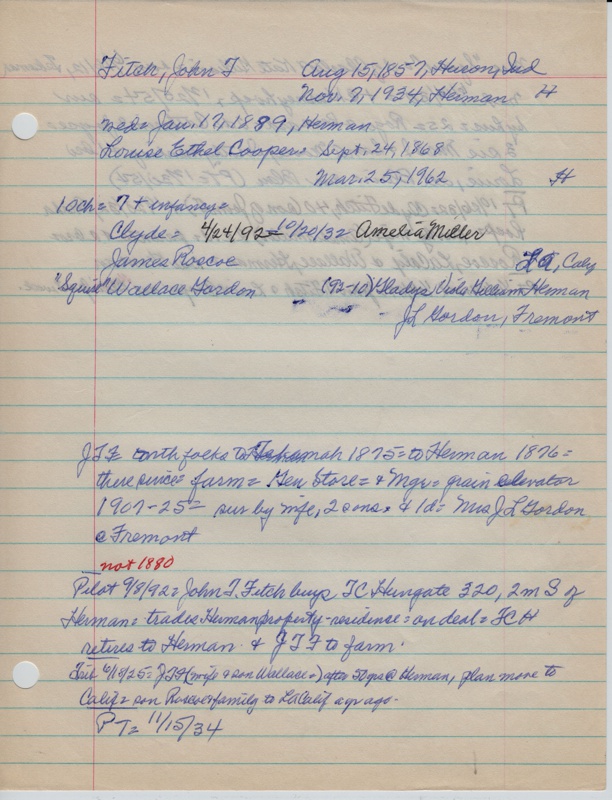 Fitch, John F Aug 15, 1857, Huron, Ind
Nov. 7, 1934, Herman H
wed = Jan. 17, 1889, Herman
Louise Ethel Cooper = Sept. 24, 1868
Mar. 25, 1962 H
10ch = 7 + infancy =
Clyde = 4/24/92 = 10/20/32 = Amelia Miller
James Roscoe LA, Calif
"Squire" Wallace Gordon (92-10) Gladys Viola Gilliam, Herman
J L Gordon, Fremont
JTF with folks to Tekamah 1875 = to Herman 1876 =
there since = farm = Gen Store = + Mgr = grain elevator
1907-25 = sur by wife, 2 sons + 1d = Mrs J L Gordon
@ Fremont
not 1880
Pilot 9/8/92 = John T. Fitch buys TC Hungate 320, 2 m S of
Herman = trades Herman property - residence = on deal = TCH
retires to Herman + JTF to farm.
6/11/25 = JTF (wife + son Wallace) after 50 yrs @ Herman, plan move to
Calif = son Roscoe + family to LA Calif a yr ago -
PT = 11/15/34